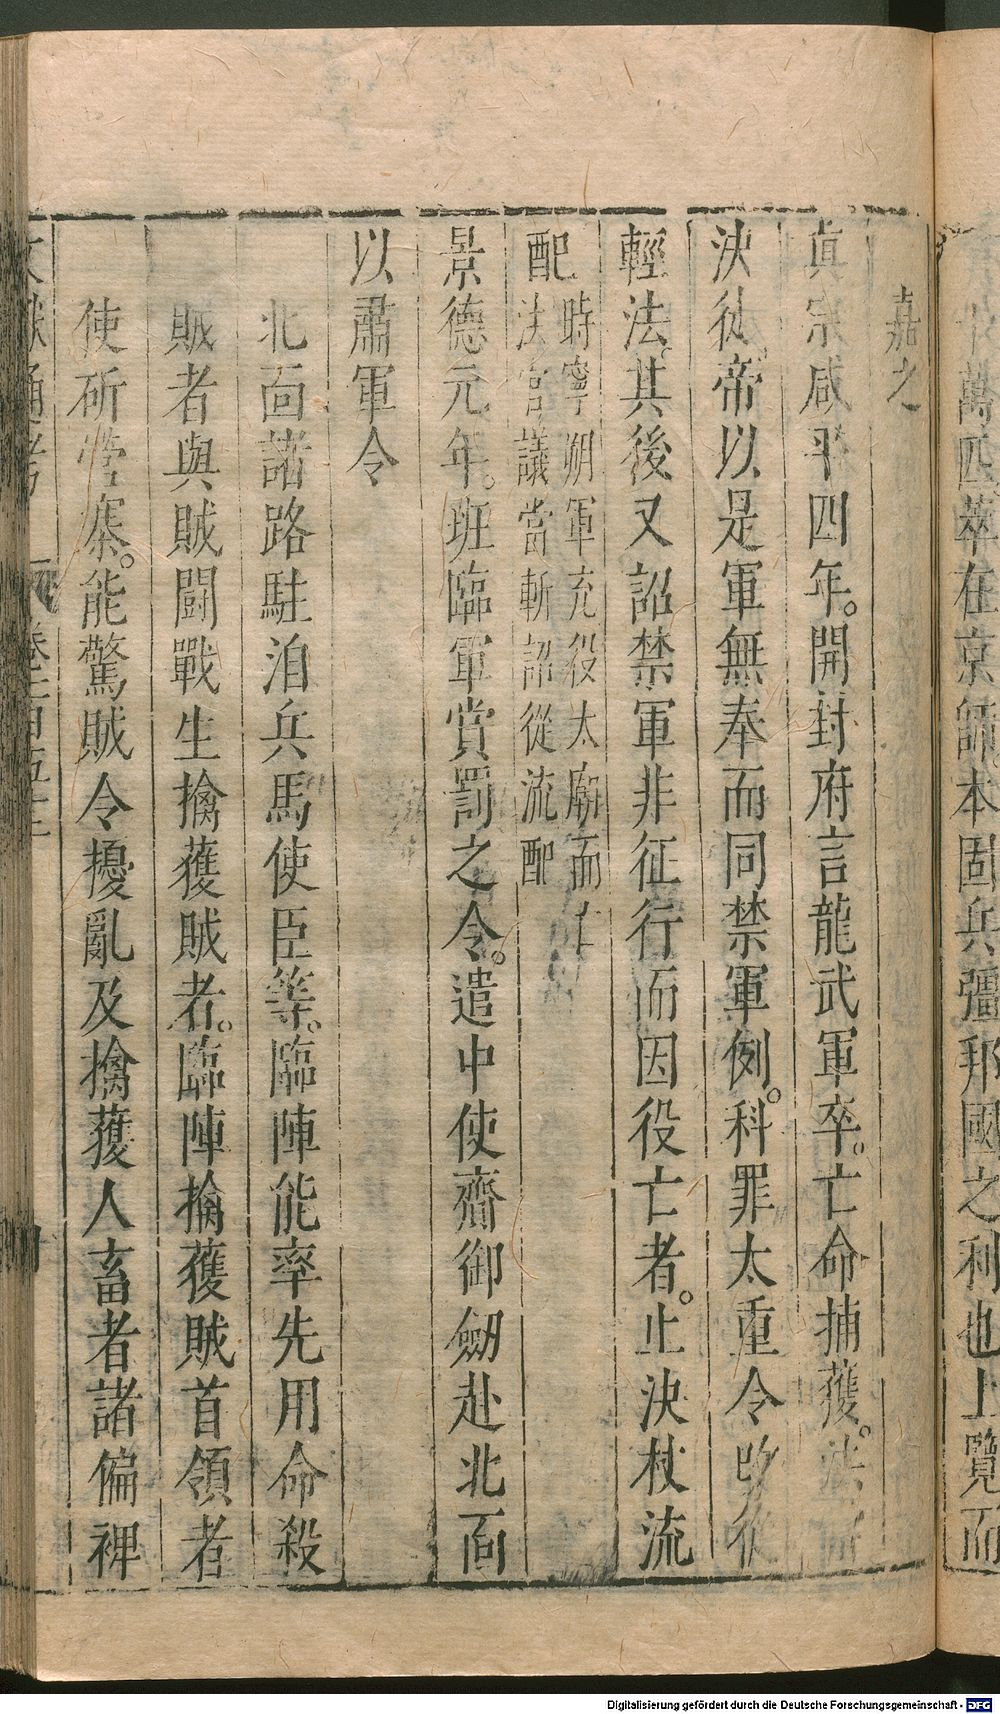 十萬匹萃在京師本固兵彊邦國之利也上覽而
嘉之
真宗咸平四年。開封府言龍武軍卒。亡命捕獲。法
決徒。帝以是軍無奉而同禁軍例。科罪太重令改從
輕法。其後又詔禁軍非征行而因役亡者。止決杖流
配
時寧朔軍充役太廟而亡
法官議當斬詔從流配
景德元年。班臨軍賞罰之令。遣中使齎御劒赴北面
以肅軍令
北面諸路駐泊兵馬使臣等。臨陣能率先用命殺
賊者與賊鬭戰生擒獲賊者。臨陣擒獲賊首領者
使斫營寨。能驚賊令擾亂及擒獲人畜者諸偏裨
文獻通考 卷一百五十二
Digitalisierung gefördert durch die Deutsche Forschungsgemeinschaft - DFG